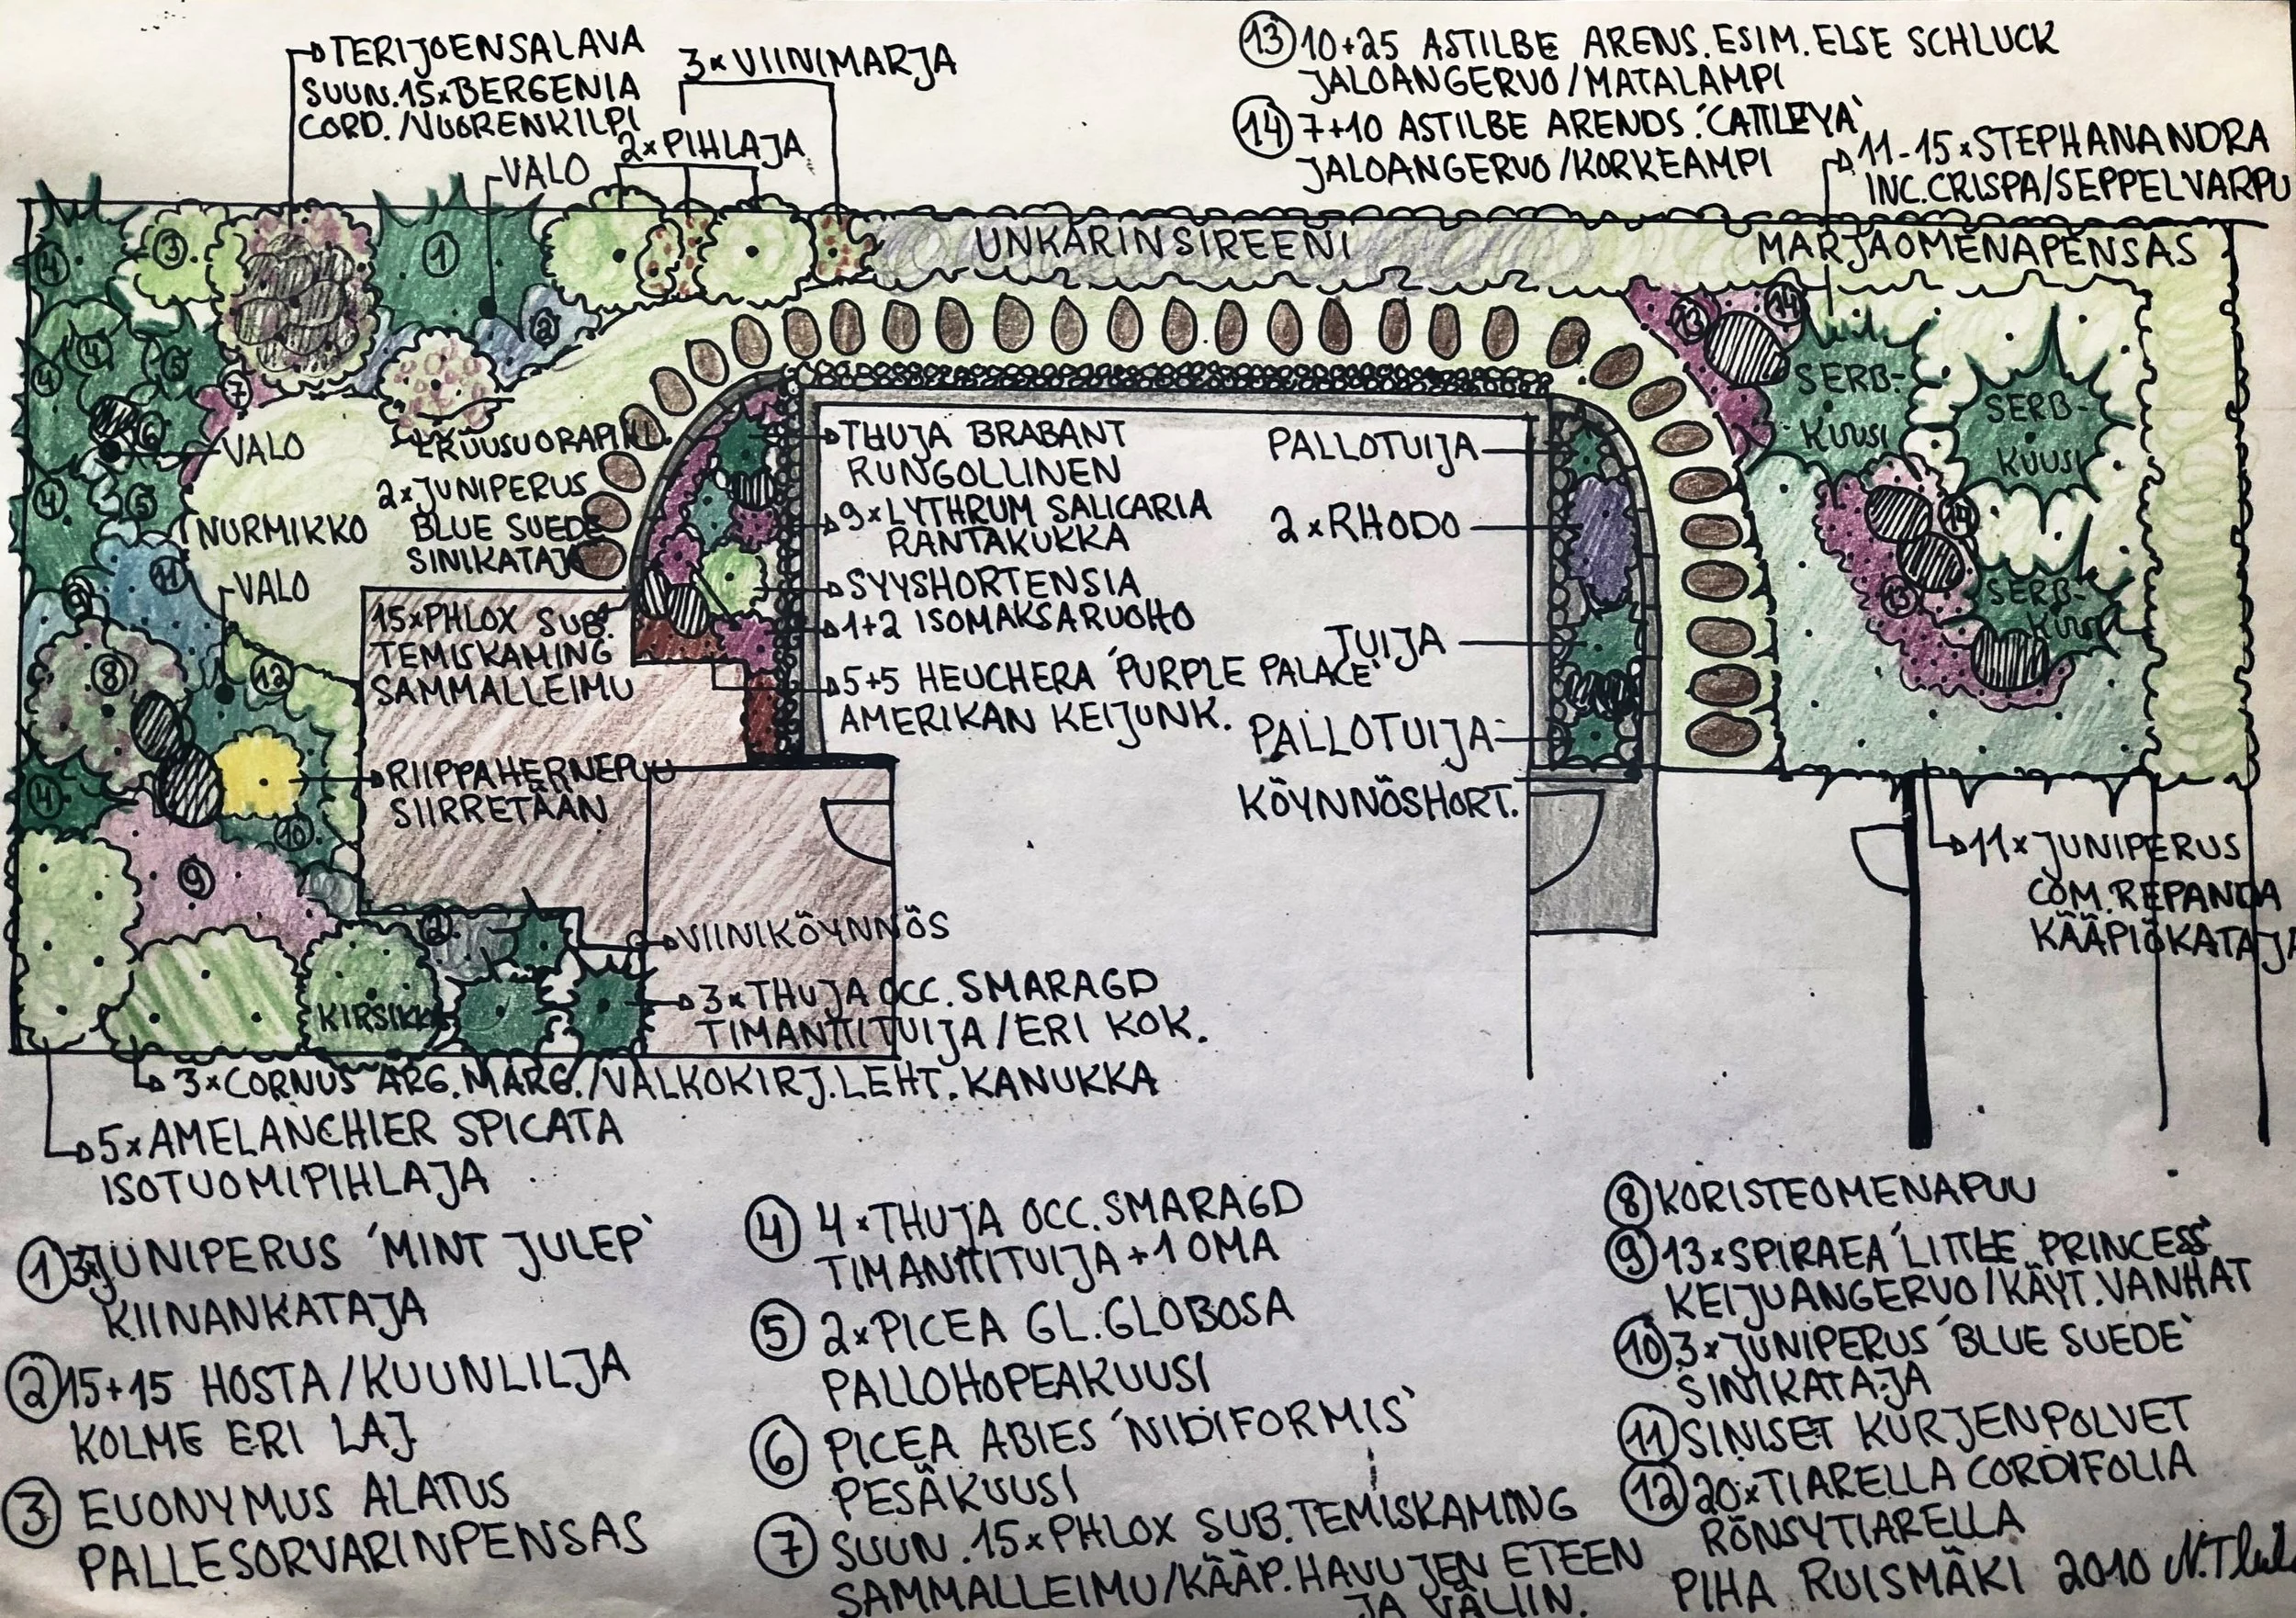 TERIJOENSALAVA
SUUN.15xBERGENIA
CORD./VUORENKILPI
3xVIINIMARJA
2xPIHLAJA
VALO
13 10+25 ASTILBE ARENS.ESIM.ELSE SCHLUCK
JALOANGERVO/MATALAMPI
14 7+10 ASTILBE ARENDS.´CATTLEYA`
JALOANGERVO/KORKEAMPI
11-15xSTEPHANANDRA
INC.CRISPA/SEPPELVARPU
UNKARINSIREENI
MARJAOMENAPENSAS
4
3
1
2
4
4
5
7
6
VALO
4
5
NURMIKKO
11
VALO
9
8
12
4
10
9
2
KIRSIKKA
2xJUNIPERUS
BLUE SUEDE
SINIKATAJA
15xPHLOX SUB.
TEMISKAMING
SAMMALLEIMU
RIIPPAHERNEPUU
SIIRRETÄÄN
THUJA BRABANT
RUNGOLLINEN
9xLYTHRUM SALICARIA
RANTAKUKKA
SYYSHORTENSIA
1+2 ISOMAKSARUOHO
5+5 HEUCHERA ´PURPLE PALACE`
AMERIKAN KEIJUNK.
PALLOTUIJA
2xRHODO
TUIJA
PALLOTUIJA
KÖYNNÖSHORT.
13
14
SERB-
KUUSI
SERB-
KUUSI
14
13
SERB-
KUUSI
11xJUNIPERUS
COM.REPANDA
KÄÄPIÖKATAJA
VIINIKÖYNNÖS
3xTHUJA OCC.SMARAGD
TIMANTTITUIJA/ERI KOK.
3xCORNUS ARG.MARG./VALKOKIRJ.LEHT.KANUKKA
5xAMELANCHIER SPICATA
ISOTUOMIPIHLAJA
1 3xJUNIPERUS ´MINT JULEP`
KIINANKATAJA
2 15+15 HOSTA/KUUNLILJA
KOLME ERI LAJ
3 EUONYMUS ALATUS
PALLESORVARINPENSAS
4 4xTHUJA OCC.SMARAGD
TIMANTTITUIJA+1 OMA
5 2xPICEA GL.GLOBOSA
PALLOHOPEAKUUSI
6 PICEA ABIES ´NIDIFORMIS`
PESÄKUUSI
7 SUUN.15xPHLOX SUB.TEMISKAMING
SAMMALLEIMU/KÄÄP.HAVUJEN ETEEN
JA VÄLIIN.
8 KORISTEOMENAPUU
9 13xSPIRAEA ´LITTLE PRINCESS`
KEIJUANGERVO/KÄYT.VANHAT
10 3xJUNIPERUS ´BLUE SUEDE`
SINIKATAJA
11 SINISET KURJENPOLVET
12 20xTIARELLA CORDIFOLIA
RÖNSYTIARELLA
PIHA RUISMÄKI 2010